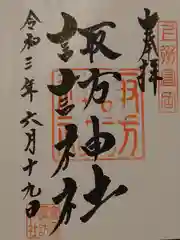 奉拝
諏訪神社
令和三年六月十九日